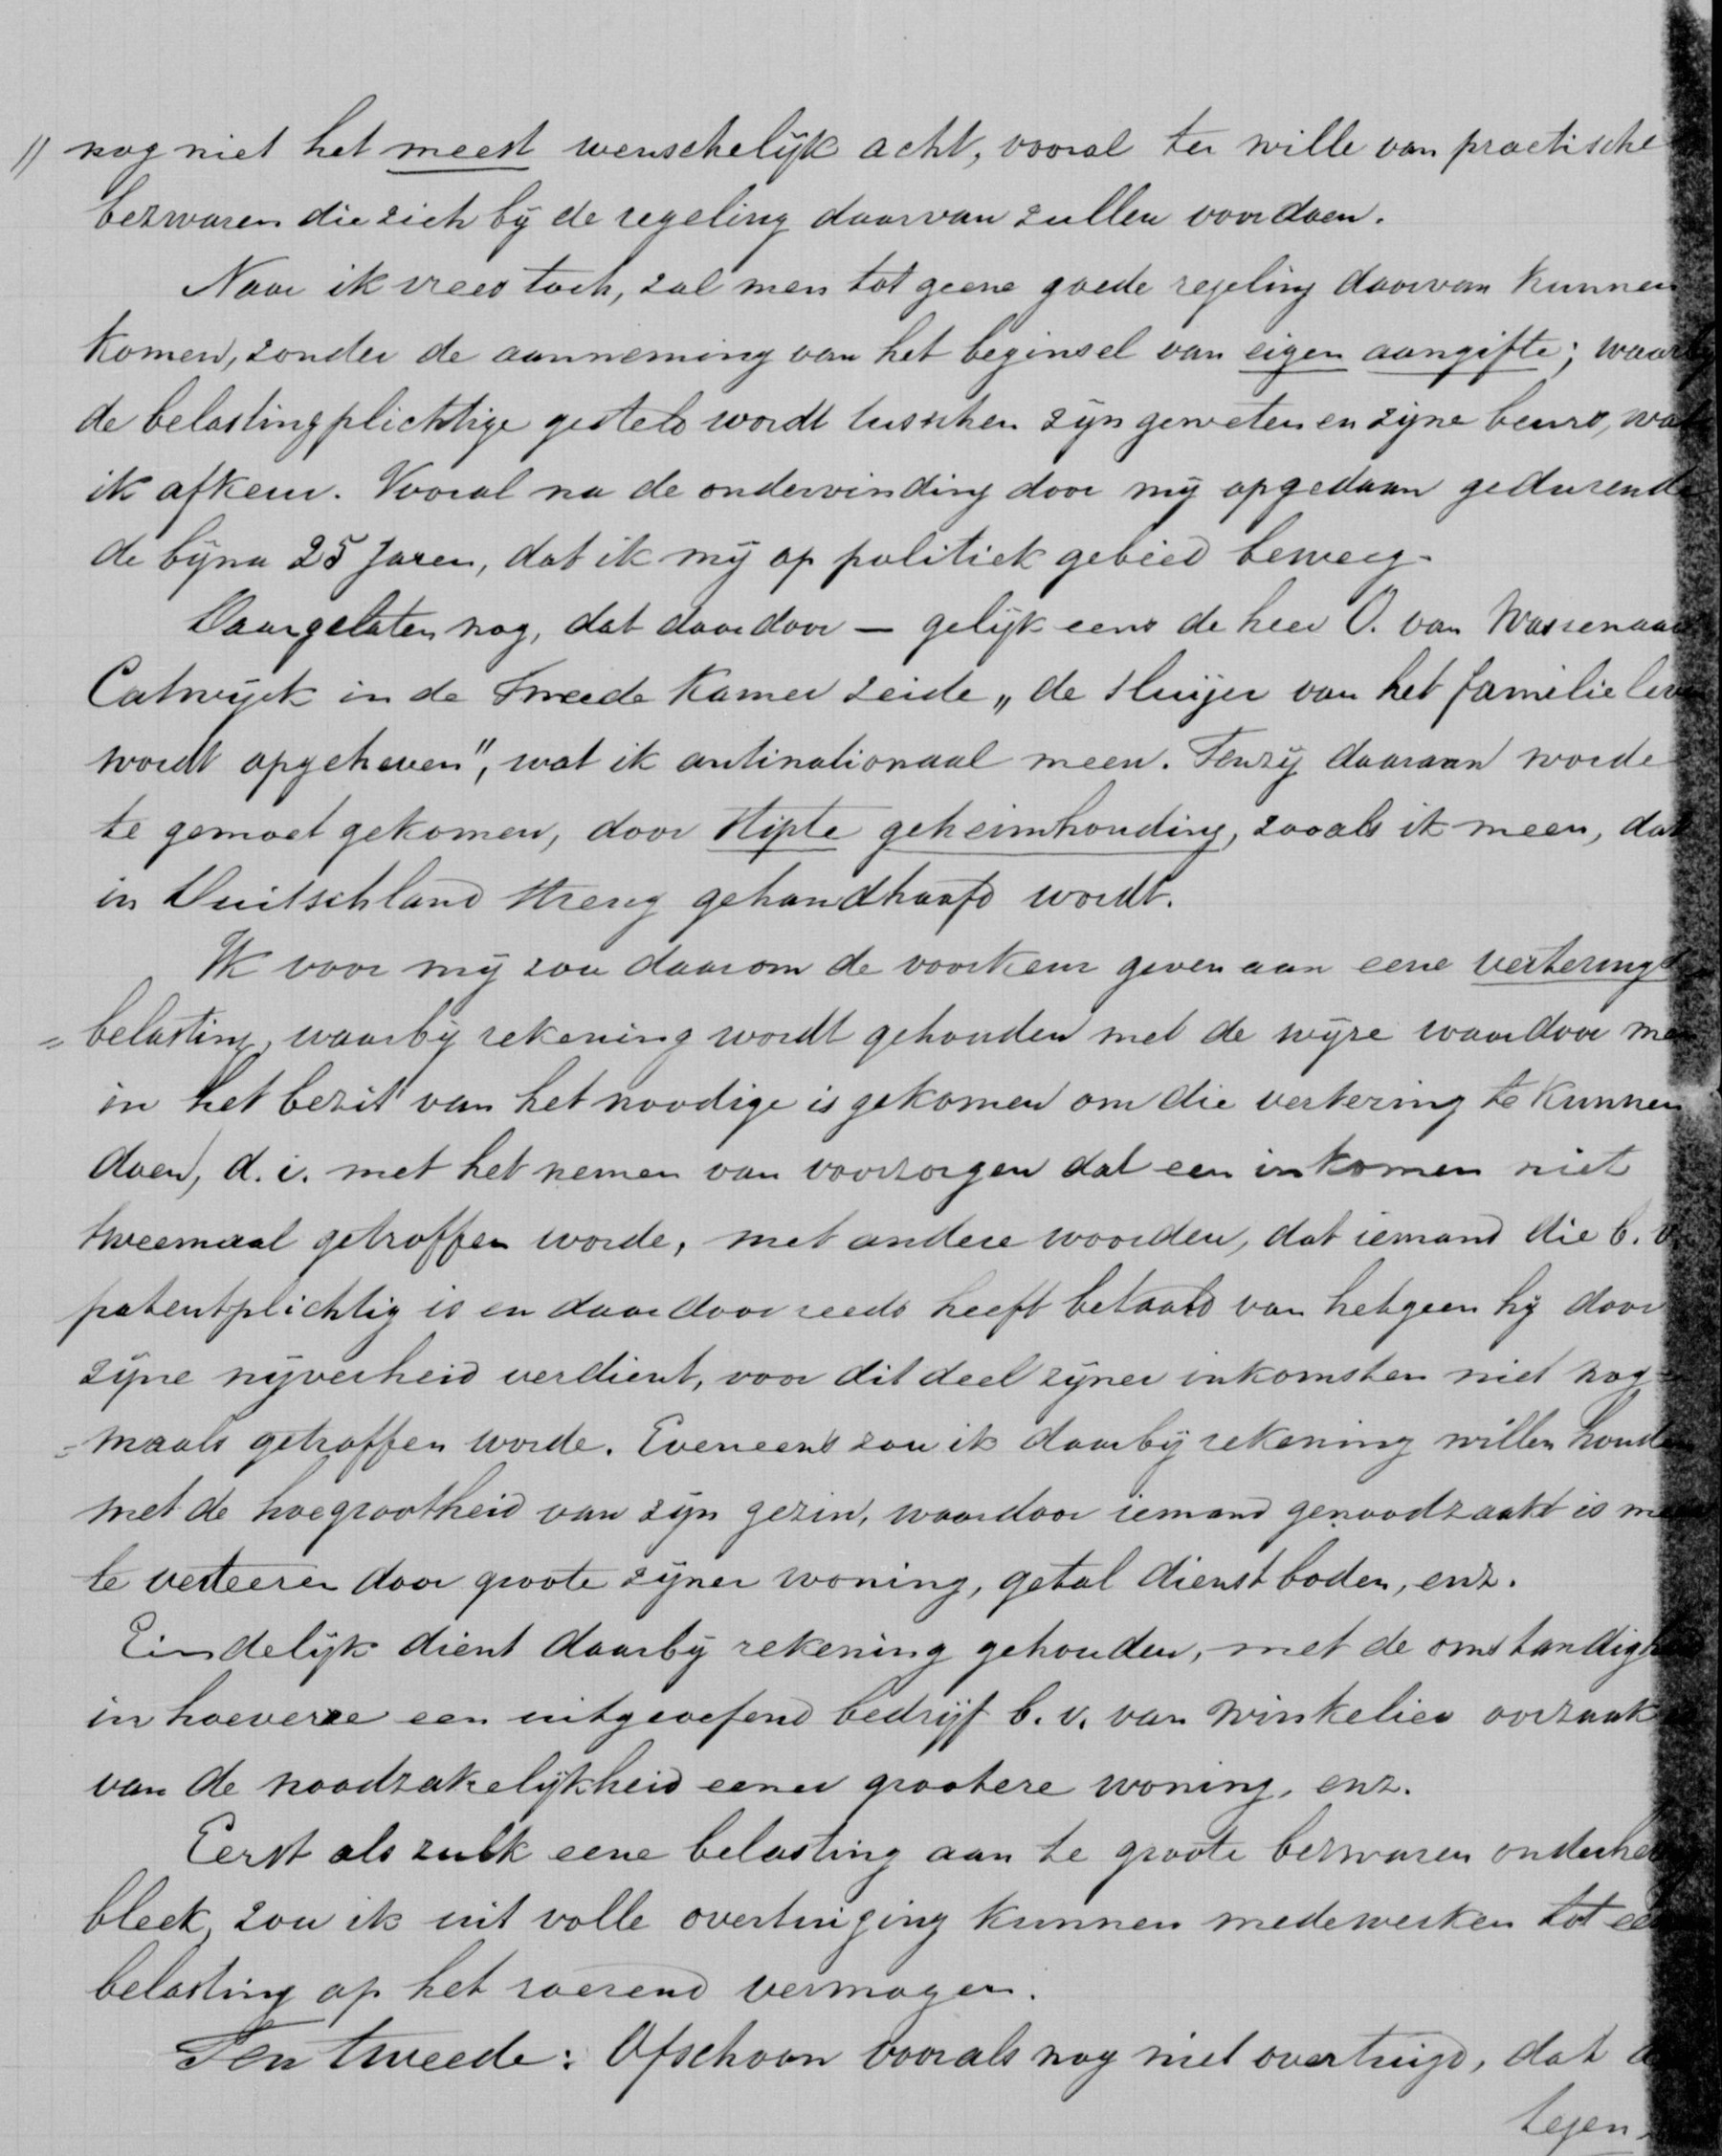 // nog niet het meest wenschelijk acht, vooral ter wille van practische
bezwaren die zich bij de regeling daarvan zullen voordoen.
Naar ik vrees toch, zal men tot geene goede regeling daarvan kunnen
komen, zonder de aanneming van het beginsel van eigen aangifte; waarbij
de belastingplichtige gesteld wordt tusschen zijn geweten en zijne beurs, wat
ik afkeur. Vooral na de ondervinding door mij opgedaan gedurende
de bijna 25 Jaren, dat ik mij op politiek gebied beweeg.
Daargelaten nog, dat daardoor — gelijk eens de heer O. van Wassenaar
Catwijck in de Tweede Kamer zeide „de sluijer van het familieleven
wordt opgeheven", wat ik antinationaal meen. Tenzij daaraan worde
te gemoet gekomen, door stipte geheimhouding, zooals ik meen, dat
in Duitschland streng gehandhaafd wordt.
Ik voor mij zou daarom de voorkeur geven aan eene verterings
= belasting, waarbij rekening wordt gehouden met de wijze waardoor men
in het bezit van het noodige is gekomen om die vertering te kunnen
doen, d.i. met het nemen van voorzorgen dat een inkomen niet
tweemaal getroffen worde, met andere woorden, dat iemand die b.v.
patentplichtig is en daardoor reeds heeft betaald van hetgeen hij door
zijne nijverheid verdient, voor dit deel zijner inkomsten niet nog=
=maals getroffen worde. Eveneens zou ik daarbij rekening willen houden
met de hoegrootheid van zijn gezin, waardoor iemand genoodzaakt is meer
te verteeren door groote zijner woning, getal dienstboden, enz.
Eindelijk dient daarbij rekening gehouden, met de omstandigheid
in hoeverre een uitgeoefend bedrijf b.v. van winkelier oorzaak
van de noodzakelijkheid eener grootere woning, enz.
Eerst als zulk eene belasting aan te groote bezwaren onderhevig
bleek, zou ik uit volle overtuiging kunnen medewerken tot eene
belasting op het roerend vermogen.
Ten tweede: Ofschoon vooralsnog niet overtuigd, dat
tegen